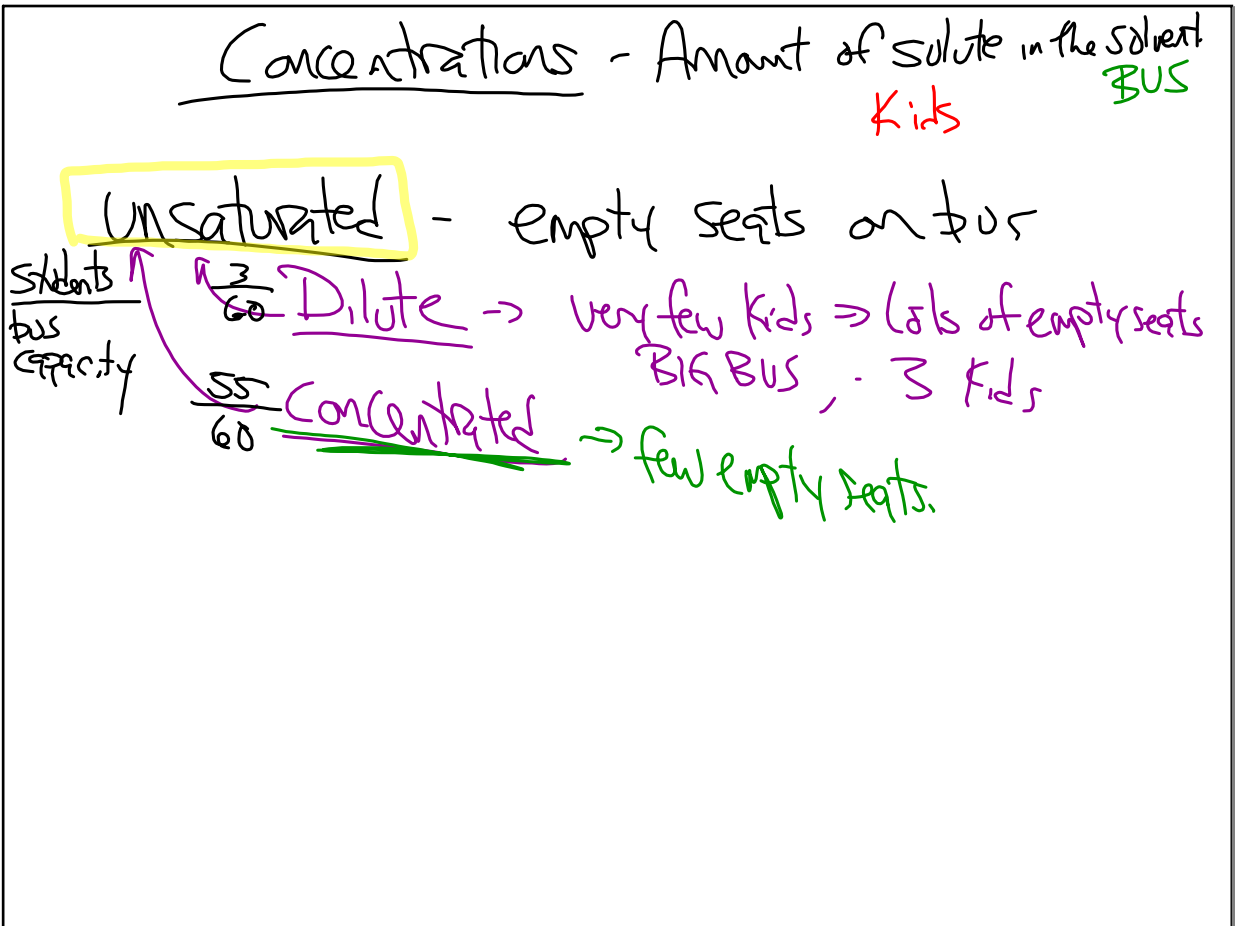 Concentrations - Amount of solute in the solvent
Kids BUS
Unsaturated - empty seats on bus
students
bus
capacity
3
60
Dilute -> very few kids => lots of empty seats
BIG BUS, . 3 Kids
55
60
Concentrated -> few empty seats.